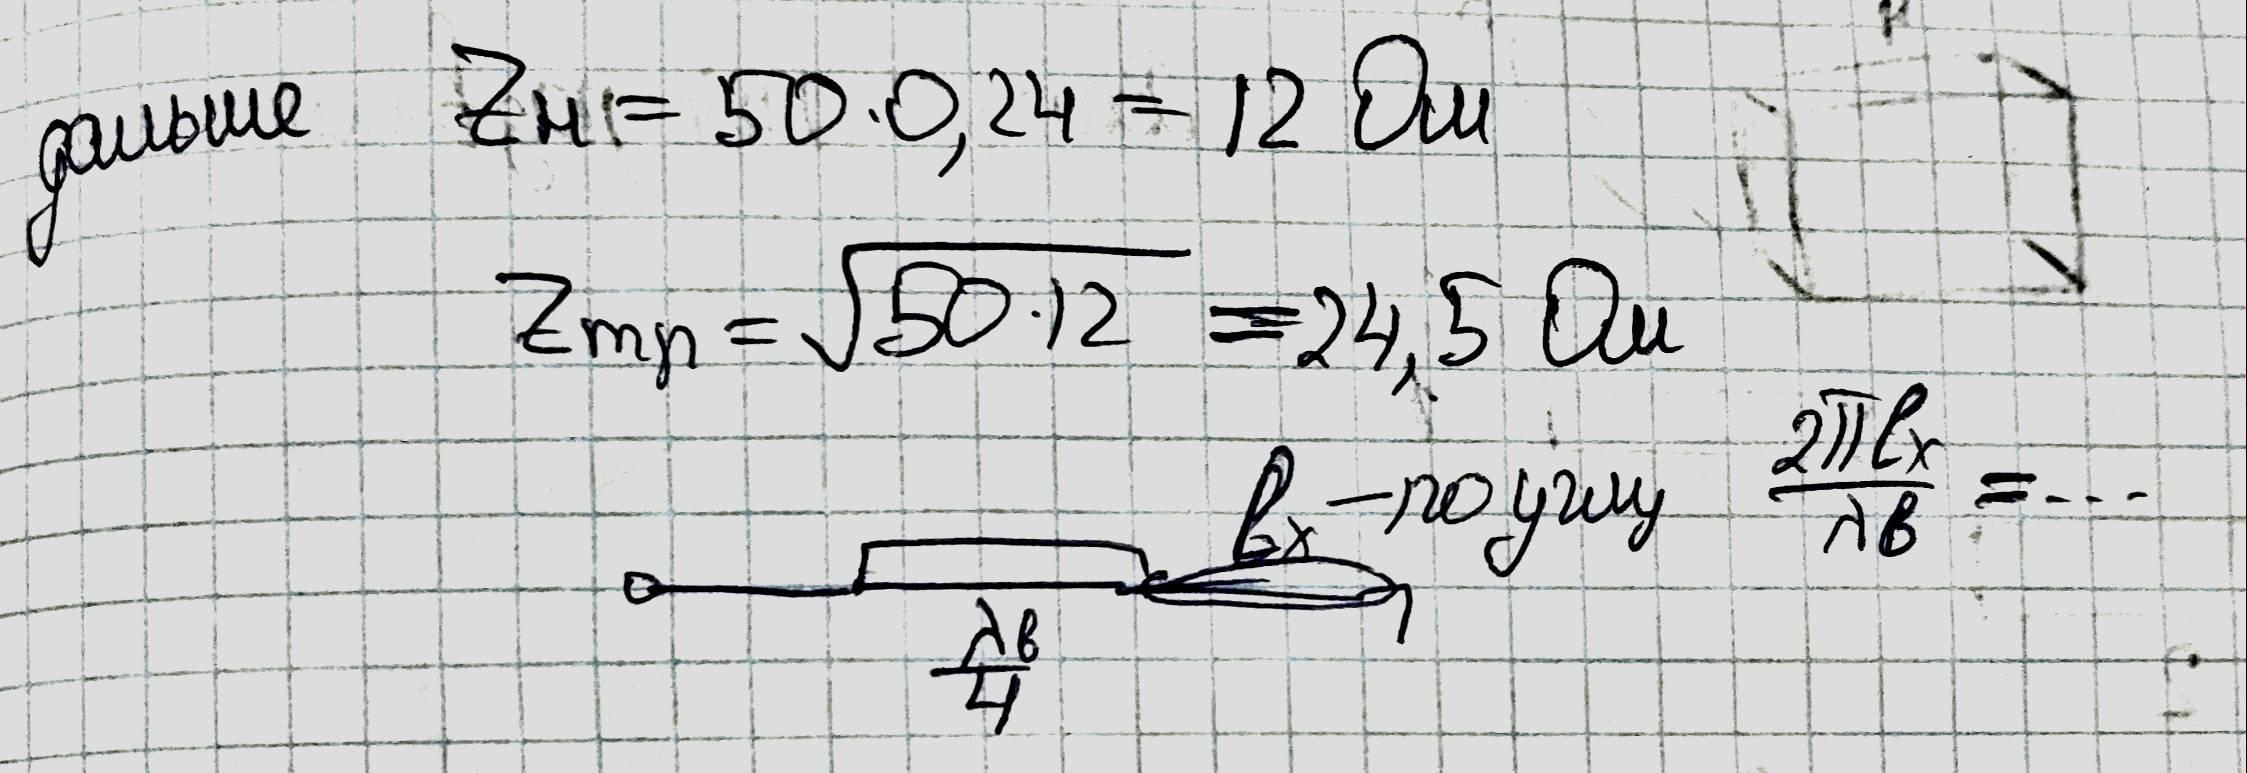 дальше Zн1 = 50·0,24 = 12 Ом
Zтр = √50·12 = 24,5 Ом
ℓx – по углу 2πℓx/λв = ...
λв/4